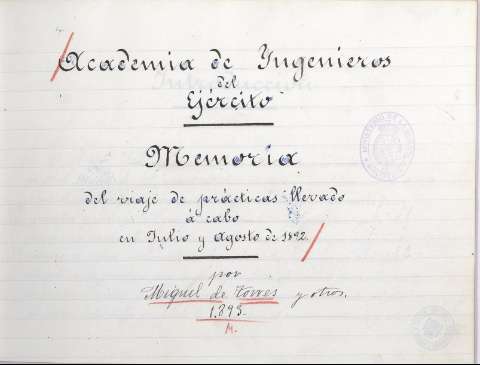 Academia de Ingenieros
del
Ejército
Memoria
del viaje de prácticas llevado
á cabo
en Julio y Agosto de 1892.
por
Miguel de Torres y otros.
1.893.
M.